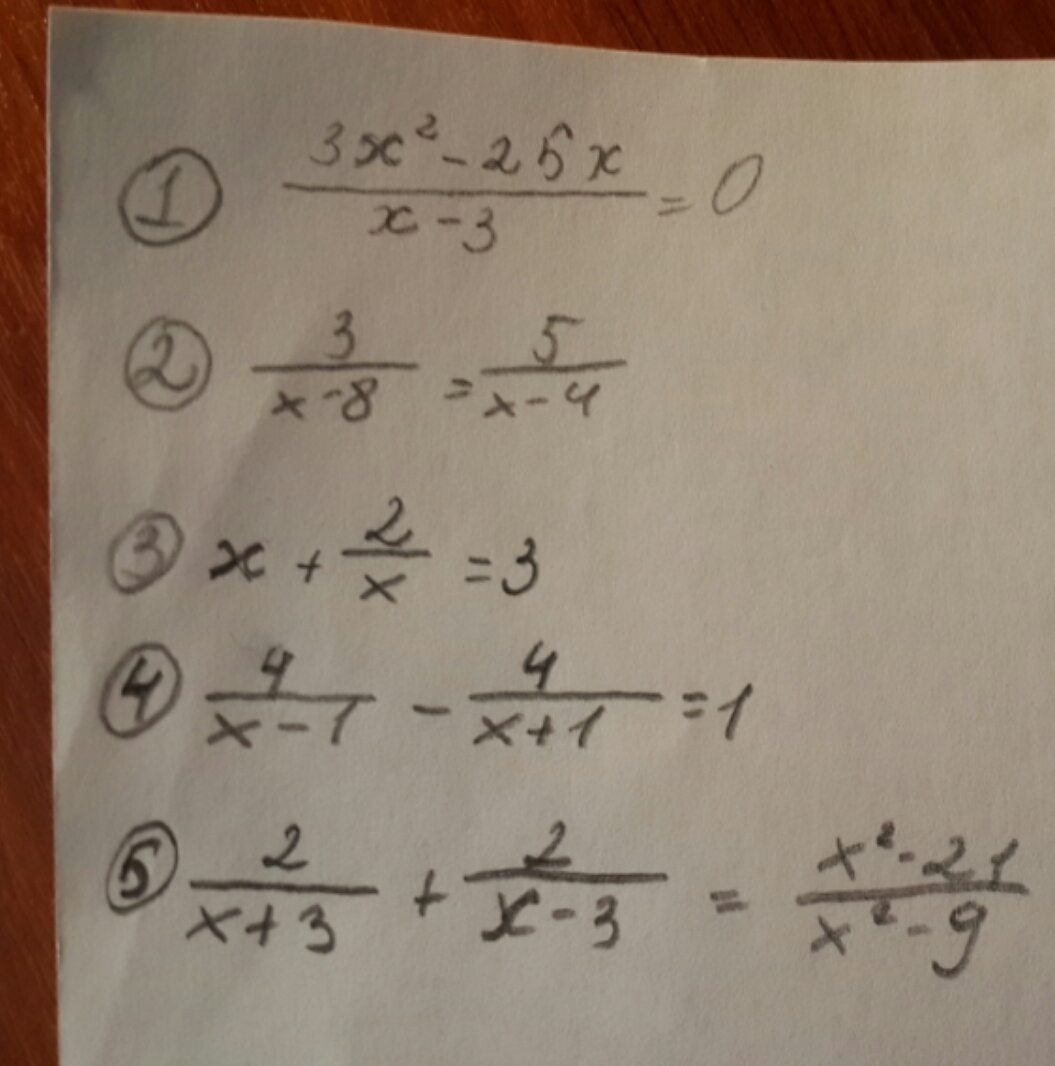 ① (3x² - 25x)/(x - 3) = 0
② 3/(x - 8) = 5/(x - 4)
③ x + 2/x = 3
④ 4/(x - 1) - 4/(x + 1) = 1
⑤ 2/(x + 3) + 2/(x - 3) = (x² - 21)/(x² - 9)